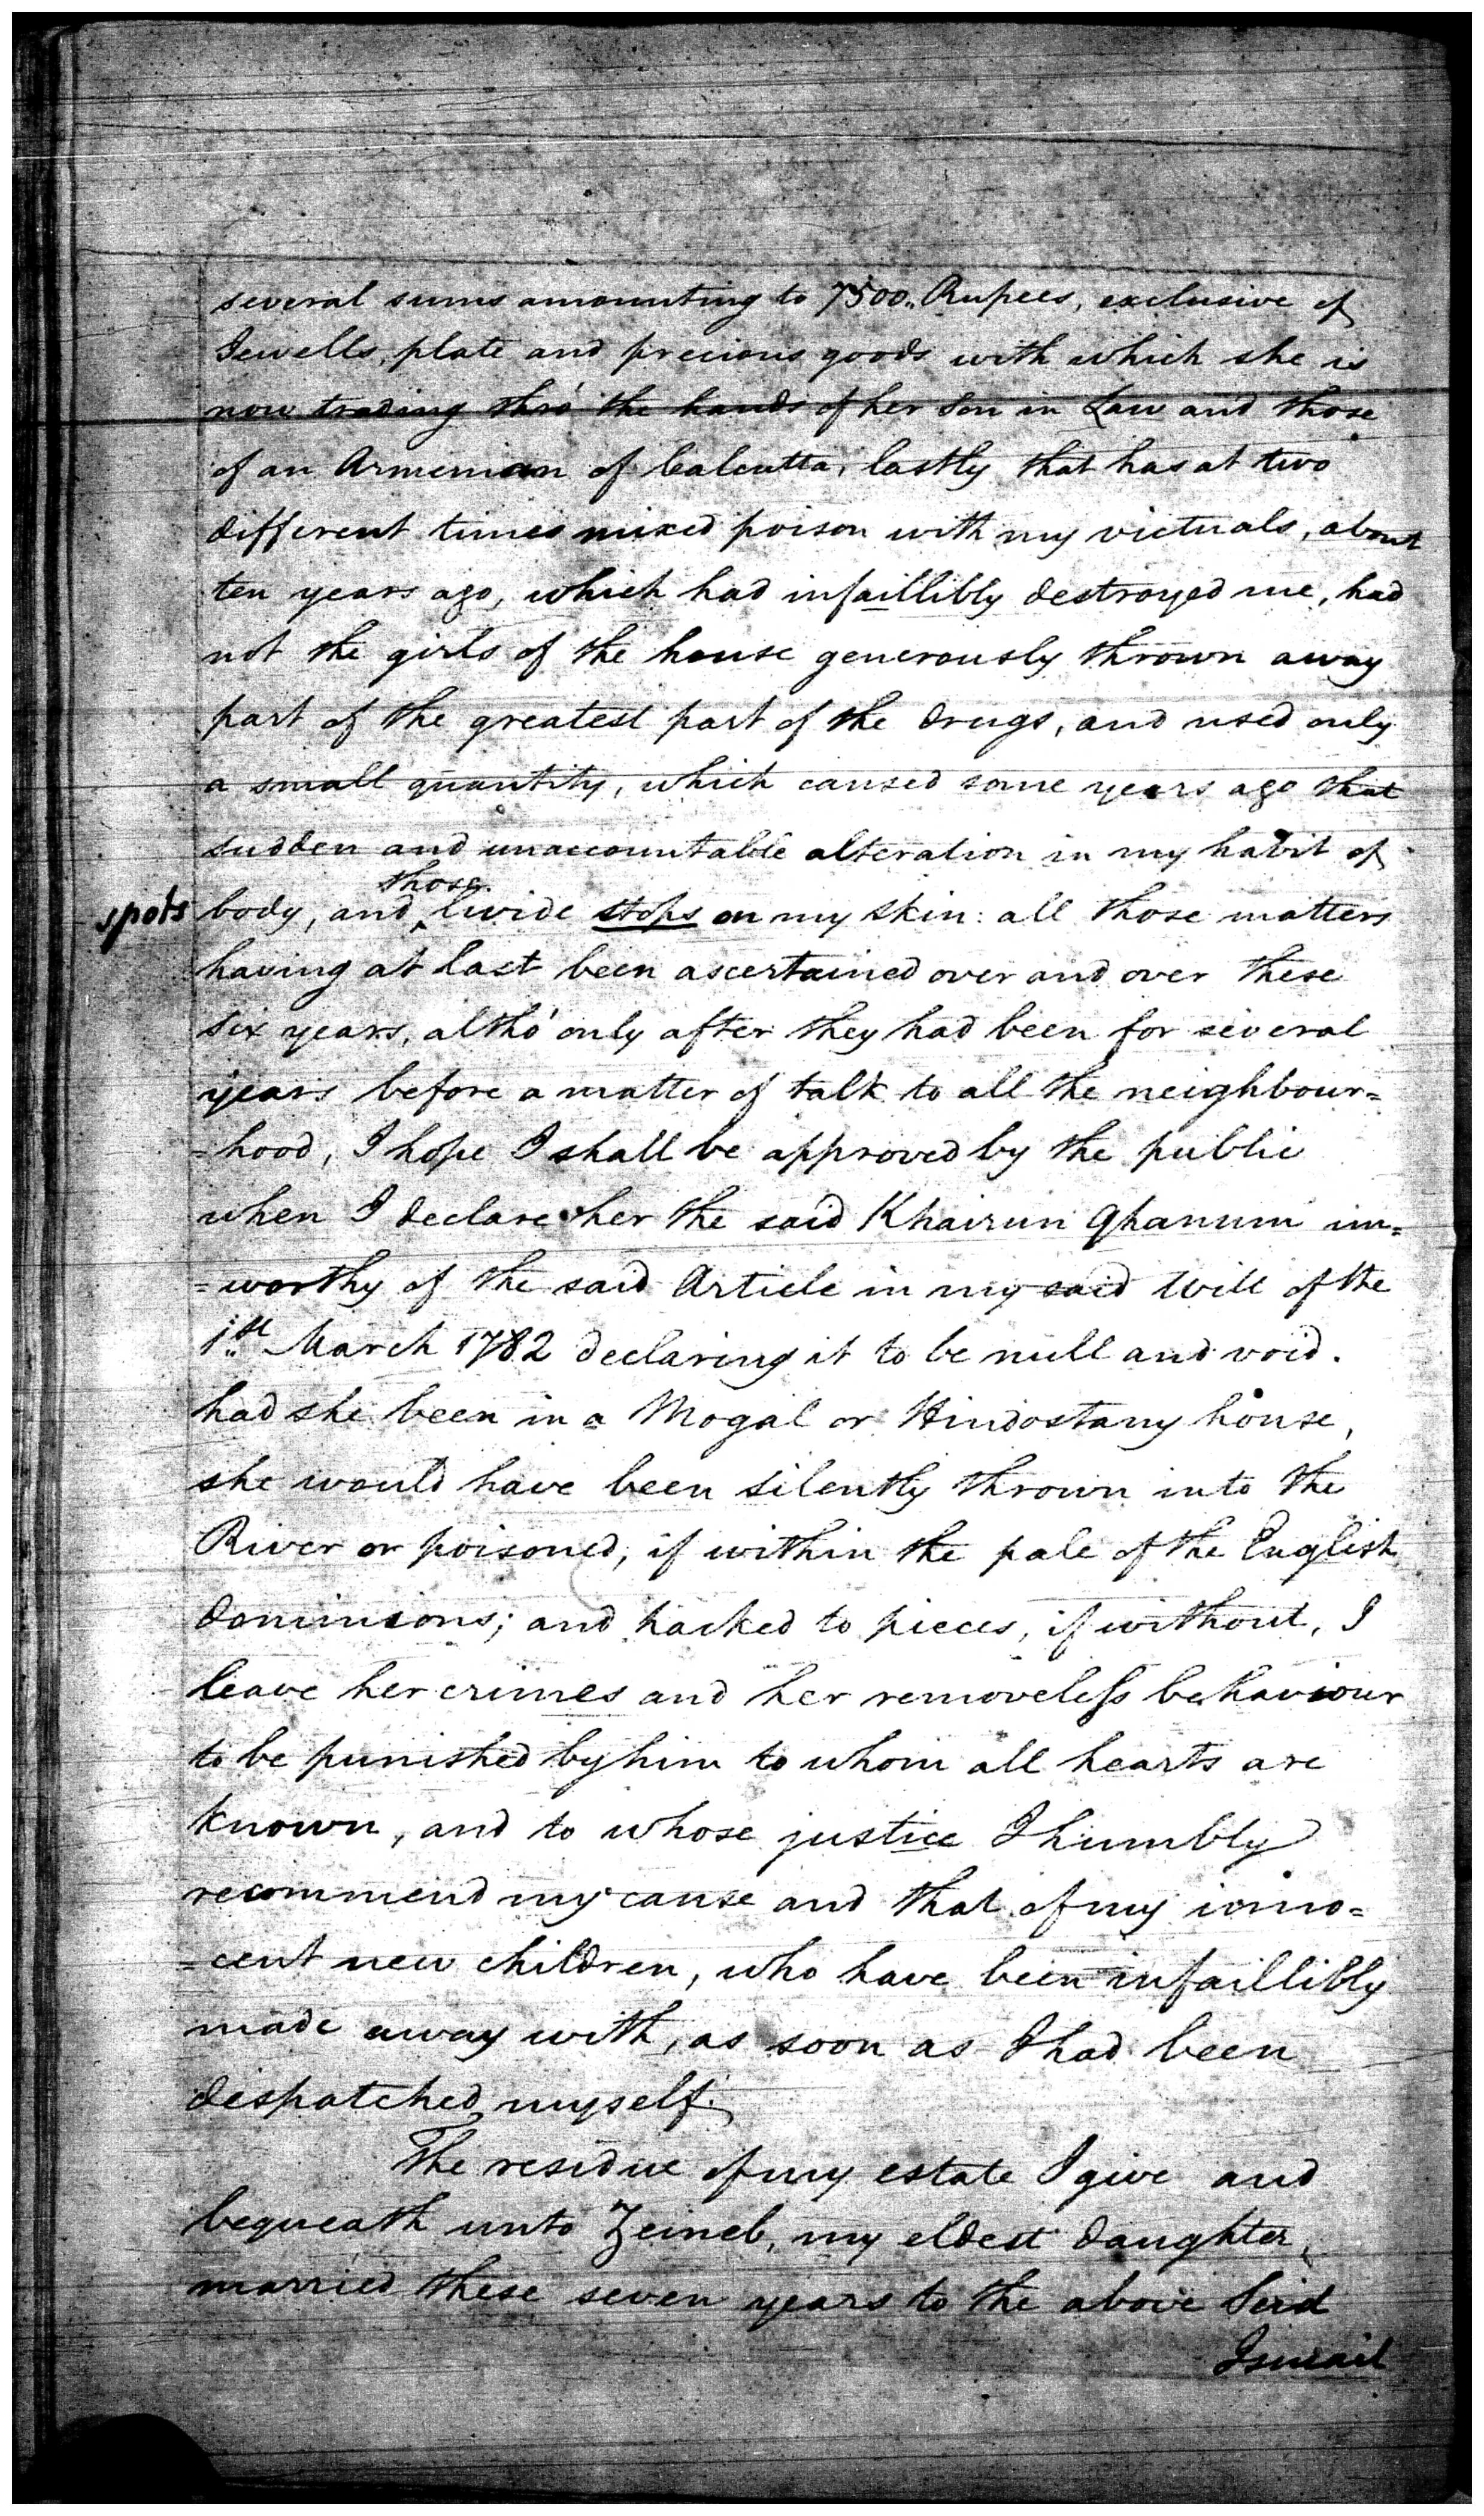 several sums amounting to 7500,, Rupees, exclusive of
Jewells, plate and precious goods with which she is
now trading thro' the hands of her Son in Law and those
of an Armenian of Calcutta, lastly that has at two
different times mixed poison with my victuals, about
ten years ago, which had infaillibly destroyed me, had
not the girls of the house generously thrown away
part of the greatest part of the drugs, and used only
a small quantity, which caused some years ago that
sudden and unaccountable alteration in my habit of
those
spots body, and livide stops on my skin: all those matters
having at last been ascertained over and over these
six years, altho' only after they had been for several
years before a matter of talk to all the neighbour=
=hood, I hope I shall be approved by the public
when I declare her the said Khairun Ghanum un=
=worthy of the said Article in my said Will of the
1st March 1782 declaring it to be null and void.
had she been in a Mogal or Hindostany house,
she would have been silently thrown into the
River or poisoned, if within the pale of the English
dominions; and hacked to pieces, if without, I
leave her crimes and her remoreless behaviour
to be punished by him to whom all hearts are
known, and to whose justice I humbly
recommend my cause and that of my inno=
=cent new children, who have been infaillibly
made away with, as soon as I had been
dispatched myself.
The residue of my estate I give and
bequeath unto Zeineb, my eldest daughter,
married these seven years to the above Seid
Ismail